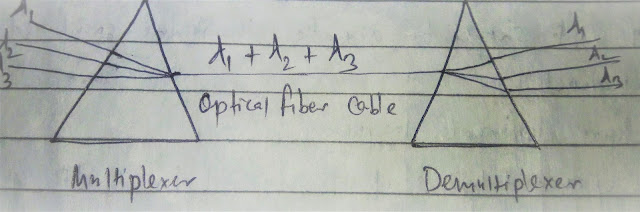 λ1
λ2
λ3
λ1 + λ2 + λ3
Optical fiber cable
λ1
λ2
λ3
Multiplexer
Demultiplexer